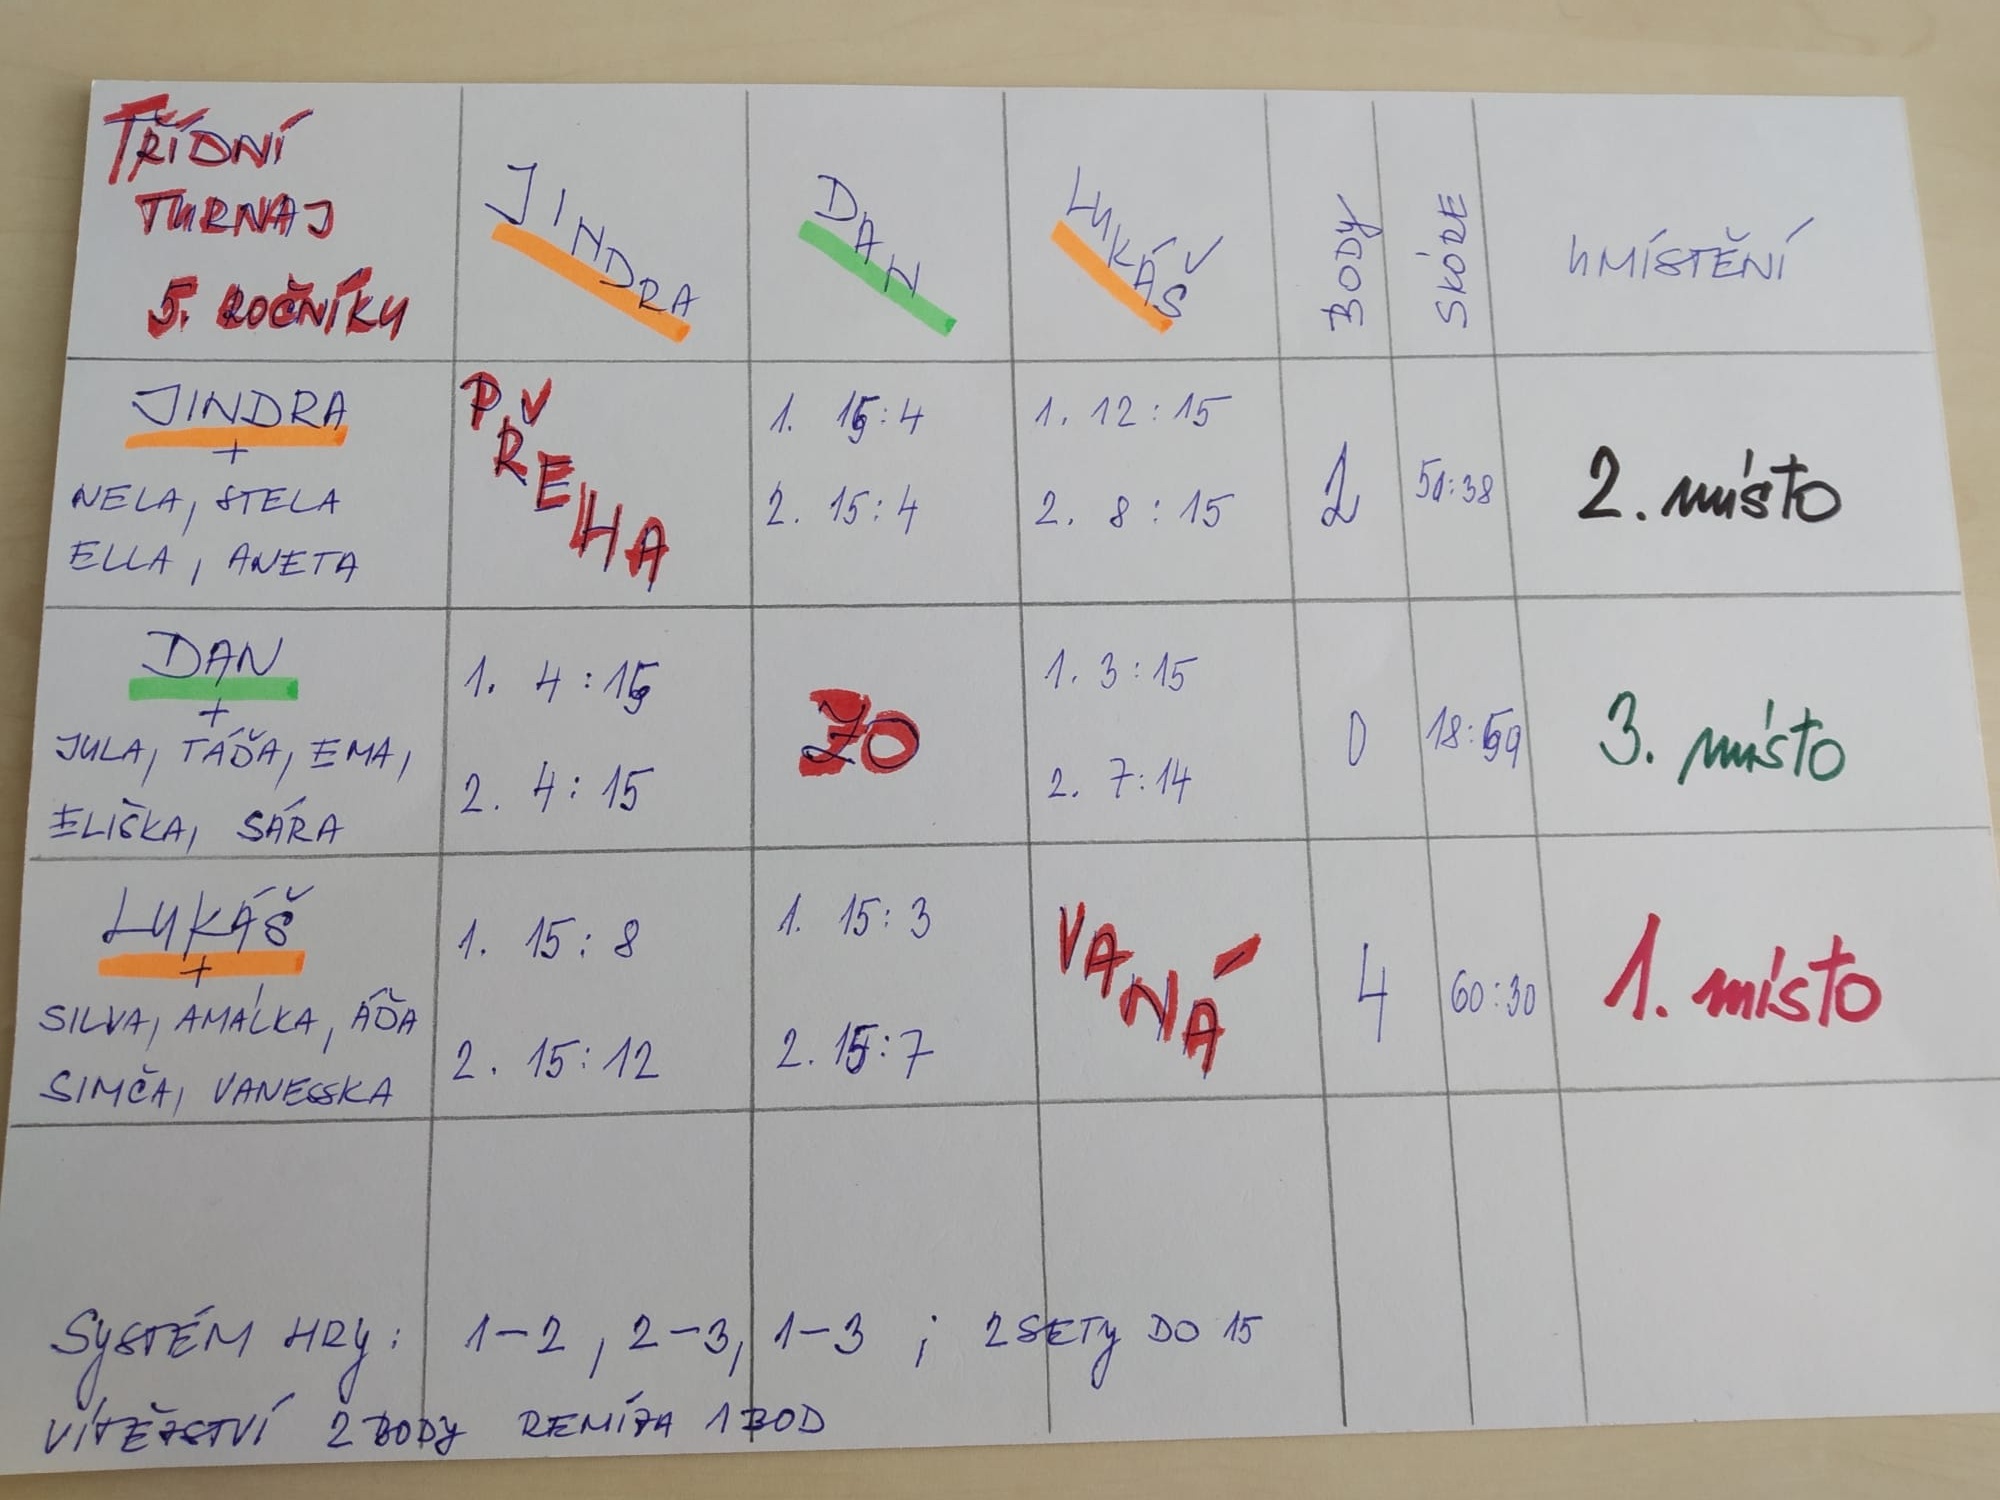 TŘÍDNÍ
TURNAJ
5. ROČNÍKU
JINDRA
DAN
LUKÁŠ
BODY
SKÓRE
UMÍSTĚNÍ
JINDRA
+
NELA, STELA
ELLA, ANETA
PŘEHA
1. 15:4
2. 15:4
1. 12:15
2. 8:15
2
51:38
2. místo
DAN
+
JULA, TÁĎA, EMA,
ELIŠKA, SÁRA
1. 4:15
2. 4:15
ZO
1. 3:15
2. 7:14
0
18:59
3. místo
LUKÁŠ
+
SILVA, AMÁLKA, ÁĎA
SIMČA, VANESSKA
1. 15:8
2. 15:12
1. 15:3
2. 15:7
VANÁ
4
60:30
1. místo
SYSTÉM HRY: 1-2, 2-3, 1-3 ; 2 SETY DO 15
VÍTĚZSTVÍ 2 BODY REMÍZA 1 BOD